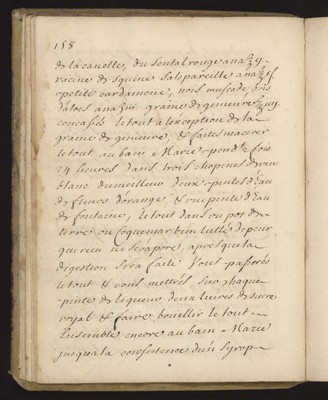 158
de la canelle, du sental rouge ana ʒ y.
racine de squine salsepareille ana
petite cardamone, nois muscade, bois
d'aloes ana ʒiii. graine de genievre
concassés le tout a lexception de la
graine de genievre, & faites macerer
le tout au bain Marie pend.t 2 fois
24 heures dans trois chopines de vin
blanc du meilleur deux pintes d'eau
de fleurs d'orange, & une pinte d'eau
de fontaine, le tout dans un pot de
terre ou coquemar bien lutté de peur
que rien ne s'evapore, apres que la
digestion sera faite Vous passerés
le tout & vous mettrés sur chaque
pinte de liqueur deux livres de sucre
royal & faire bouillir le tout
Ensemble encore au bain Marie
jusqua la consistence d'un syrop